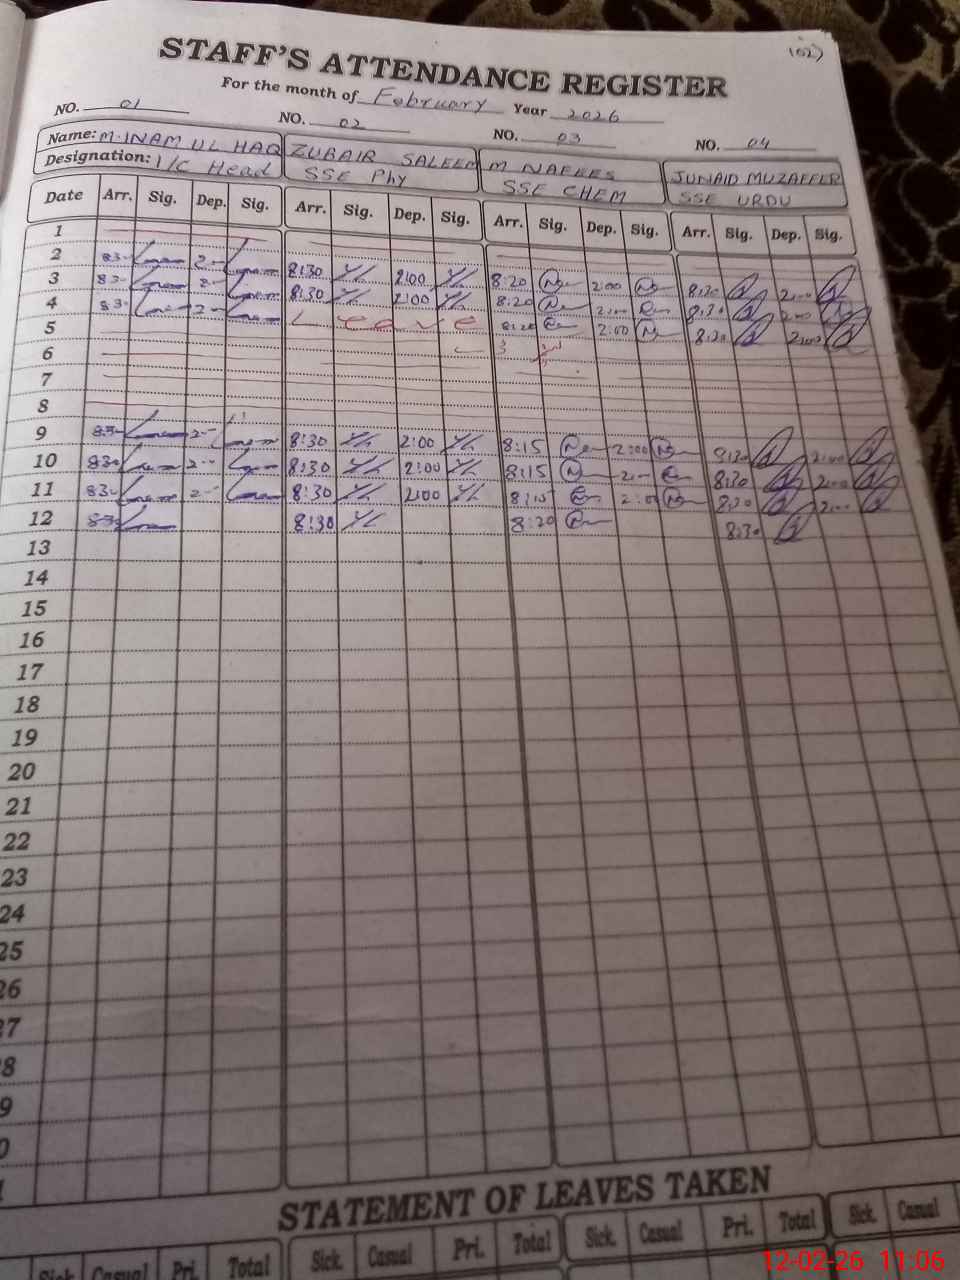 (02)
STAFF'S ATTENDANCE REGISTER
For the month of February Year 2026
NO. 01 NO. 02 NO. 03 NO. 04
Name: M. INAM UL HAQ ZUBAIR SALEEM M NAFEES JUNAID MUZAFFER
Designation: I/C Head SSE Phy SSE CHEM SSE URDU
Date Arr. Sig. Dep. Sig. Arr. Sig. Dep. Sig. Arr. Sig. Dep. Sig. Arr. Sig. Dep. Sig.
1
2 83- 2- 8:30 2:00 8:20 2:00 8:30 2:00
3 83- 2- 8:30 2:00 8:20 2:00 8:30 2:00
4 83- 2- Leave 8:20 2:00 8:30 2:00
5
6
7
8
9 83- 2- 8:30 2:00 8:15 2:00 8:30 2:00
10 830 2- 8:30 2:00 8:15 2- 8:30 2:00
11 83- 2- 8:30 2:00 8:15 2:00 8:30 2:00
12 83- 8:30 8:20 8:30
13
14
15
16
17
18
19
20
21
22
23
24
25
26
27
8
9
0
STATEMENT OF LEAVES TAKEN
Sick Casual Pri. Total Sick. Casual Pri. Total Sick. Casual Pri. Total Sick. Casual
12-02-26 11:06